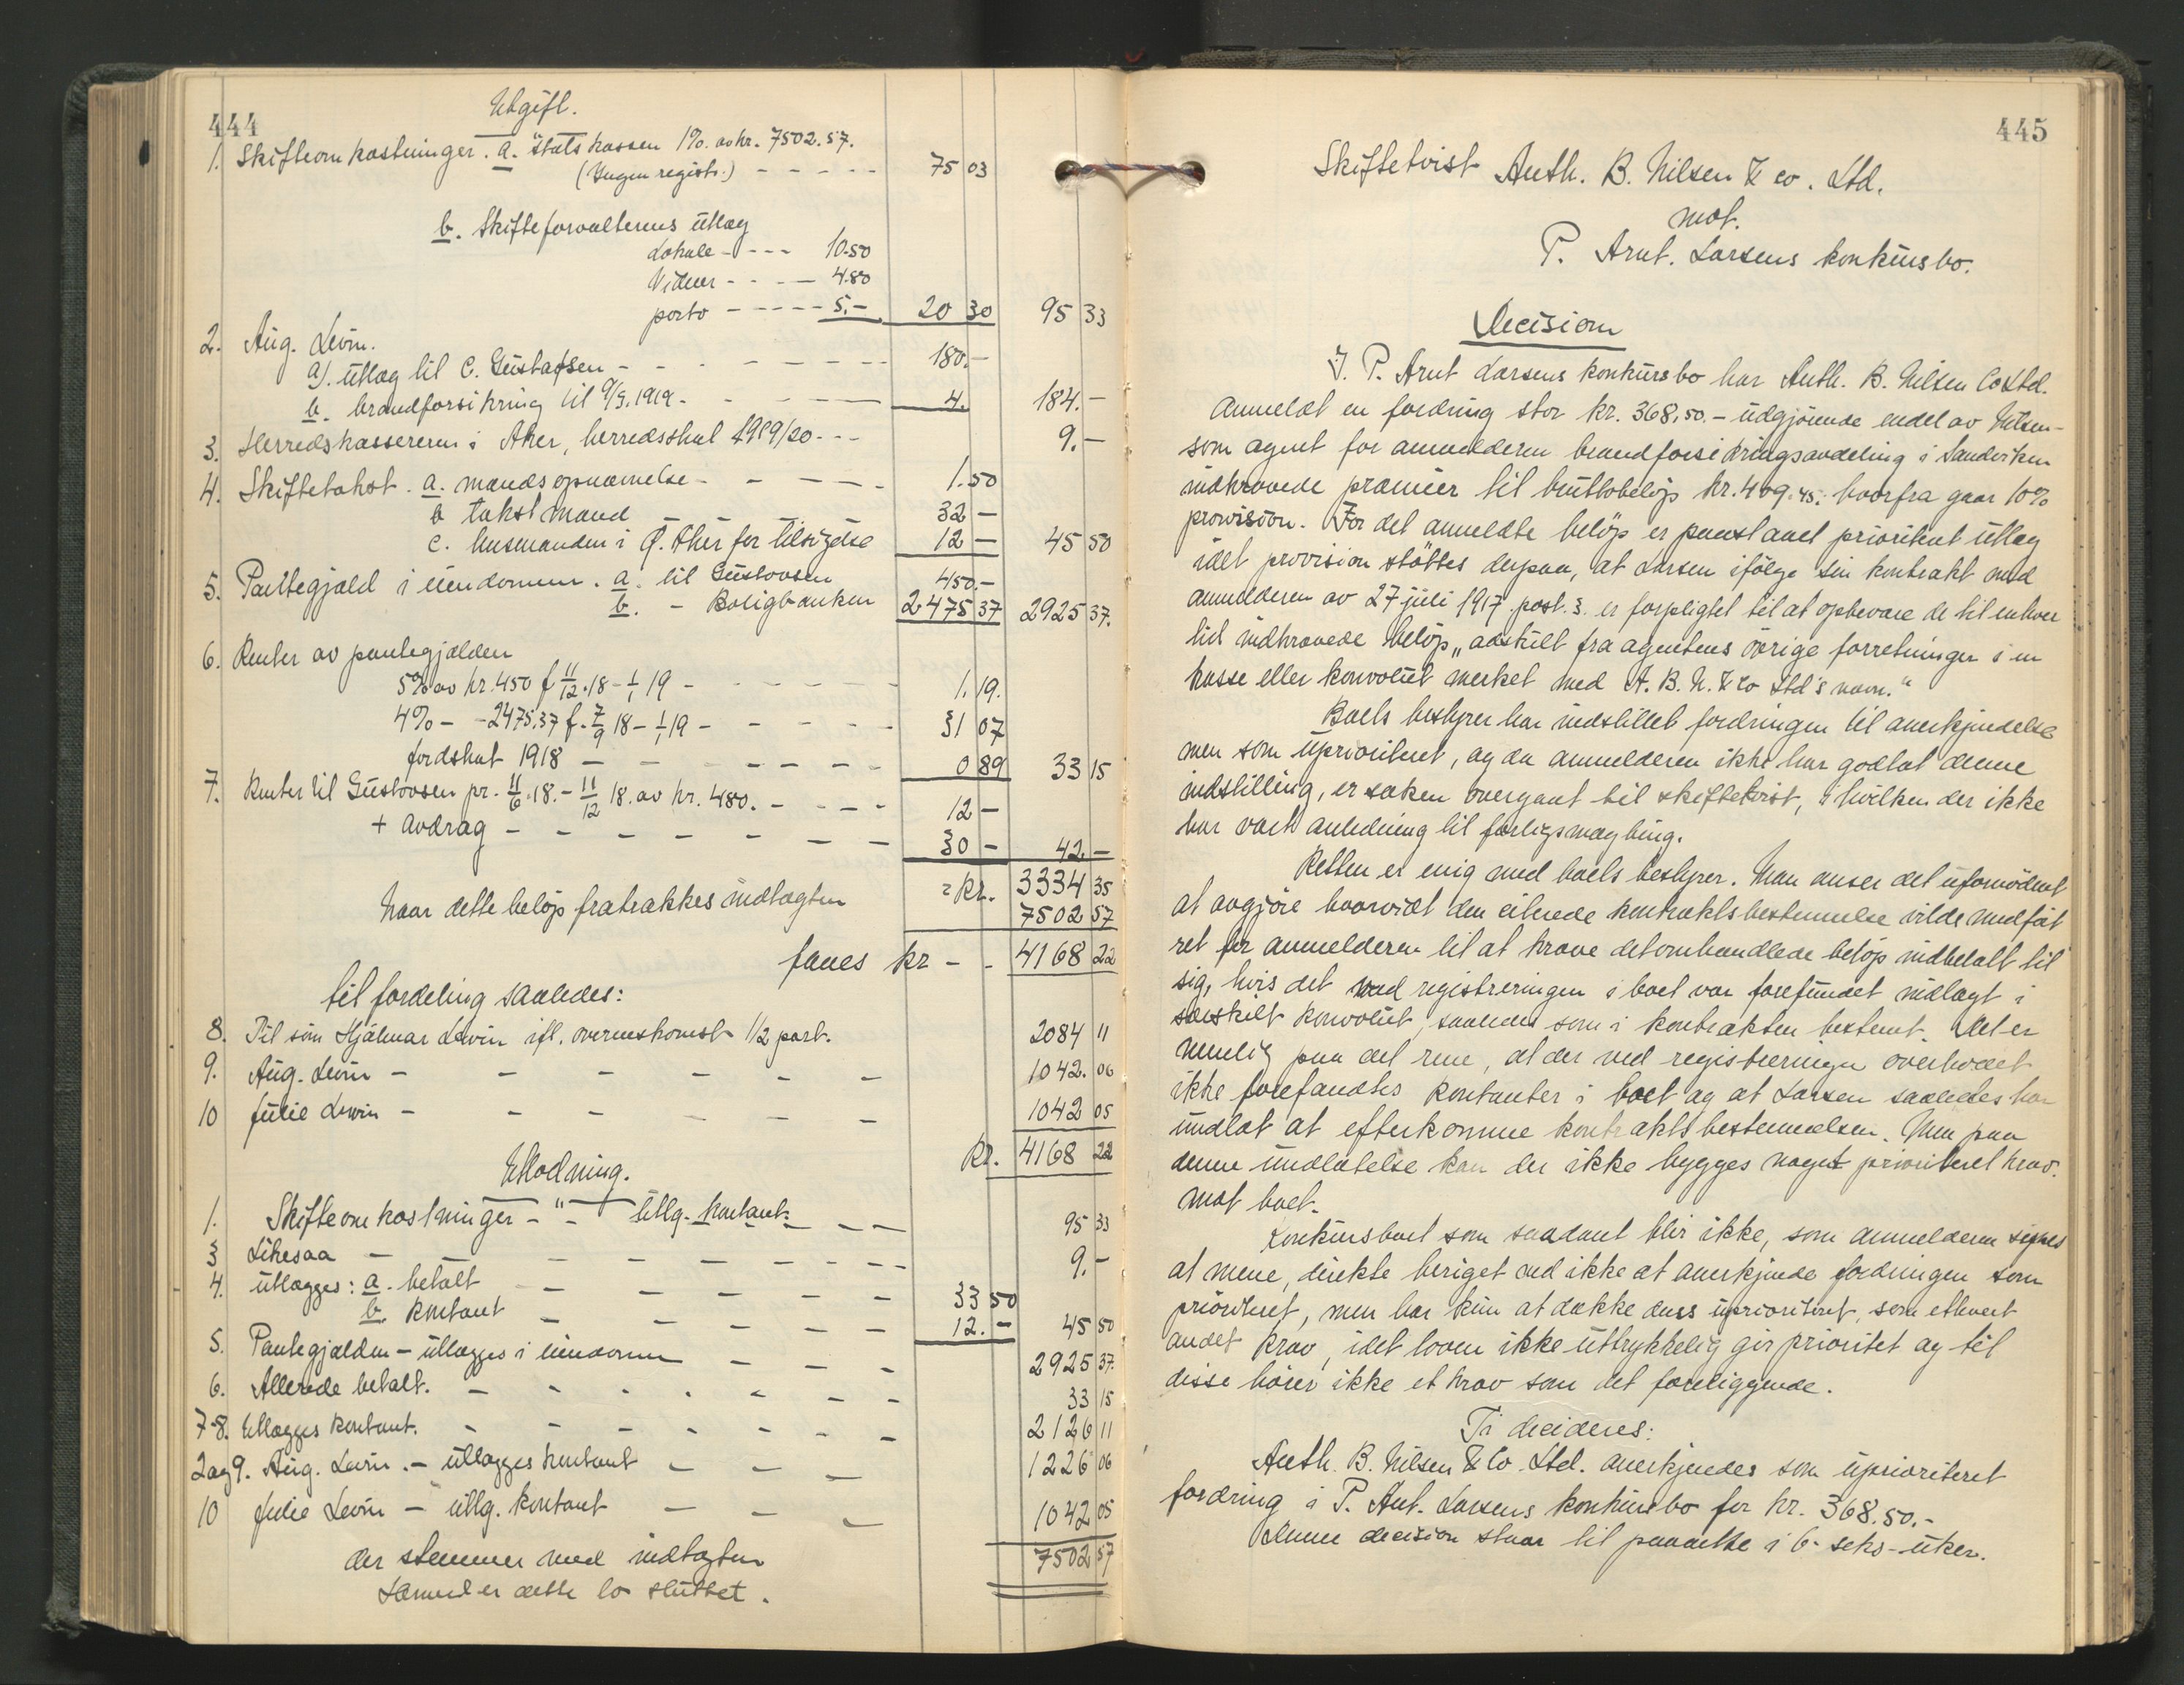 444
Utgift.
1. Skifteomkostninger. a. statskassen 1% av kr. 7502.57.
(Ingen registr.) - - - - - 75 03
b. Skifteforvalterens utlæg
Lokale - - - - 10.50
Vidner - - - - 4.80
porto - - - - - 5.- 20 30 95 33
2. Aug. Levin.
a). utlæg til C. Gustafsen - - - - - - - 180.-
b. brandforsikring til 9/9.1919. - - - 4. 184.-
3. Herredskassereren i Aker, herredsskat 1919/20 - - - 9.-
4. Skiftetakst. a. mandsopnævnelse - - - - 1.50
b takstmænd - - - - 32 -
c. lensmanden i Ø. Aker for tilsigelse 12 - 45 50
5. Pantegjæld i eiendommen. a. til Gustavsen 450.-
b. - Boligbanken 2475 37 2925 37.
6. Renter av pantegjælden
5% av kr. 450 f 11/12.18 - 1/1 19 - - - - - 1.19.
4% - - 2475.37 f. 7/9 18 - 1/1 19 - - - - 31 07
jordskat 1918 - - - - - - 0 89 33 15
7. Renter til Gustavsen pr. 11/6.18. - 11/12 18. av kr. 480. - - - - 12 -
+ Avdrag - - - - - - - 30 - 42.-
= kr. 3334 35
Naar dette beløp fratrækkes indtægten 7502 57
faaes kr - - 4168 22
til fordeling saaledes:
8. Til søn Hjalmar Levin ifl. overenskomst 1/2 part. 2084 11
9. Aug. Levin - - - - - - 1042. 06
10 Julie Levin - - - - - - 1042 05
Kr. 4168 22
Utlodning.
1. Skifteomkostninger - " - utlg. kontant - - 95 33
3 Likesaa - - - - - - - 9.-
4. utlægges: a. betalt - - - - - 33 50
b. kontant - - - - - 12.- 45 50
5. Pantegjælden - utlægges i eiendommen - - - 2925 37.
6. Allerede betalt. - - - - - - - 33 15
7-8. Utlægges kontant. - - - - - - - 2126 11
2 og 9. Aug. Levin. - utlægges kontant - - - 1226 06
10 Julie Levin - utlg. kontant - - - 1042 05
der stemmer med indtægten 7502 57
Dermed er dette bo sluttet.
445
Skiftetvist Anth. B. Nilsen & co. Ltd.
mot.
P. Arnt. Larsens konkursbo.
Decision
I. P. Arnt Larsens konkursbo har Anth. B. Nilsen Co Ltd.
anmeldt en fordring stor kr. 368,50.- udgjørende endel av
som agent for anmelderen brandforsikringsavdeling i Sandviken
indkrævede præmier til bruttobeløp kr. 409.45. hvorfra gaar 10%
provision. For det anmeldte beløp er paastaaet prioritert utlæg
idet provision støttes derpaa, at Larsen ifølge sin kontrakt med
anmelderen av 27 juli 1917 post. 3. er forpligtet til at opbevare de til enhver
tid indkrævede beløp „adskilt fra agentens øvrige forretninger i en
kasse eller konvolut merket med A. B. N. & Co Ltd's navn."
Boets bestyrer har indstillet fordringen til anerkjendelse
men som uprioritert, og da anmelderen ikke har godtat denne
indstilling, er saken overgaat til skiftetvist, i hvilken der ikke
har vært anledning til forligsmægling.
Retten er enig med boets bestyrer. Man anser det ufornødent
at avgjøre hvorvidt den citerede kontraktsbestemmelse vilde medført
ret for anmelderen til at kræve det omhandlede beløp indbetalt til
sig, hvis det ved registreringen i boet var forefundet indlagt i
særskilt konvolut, saaledes som i kontrakten bestemt. Det er
nemlig paa det rene, at der ved registreringen overhodet
ikke forefandtes kontanter i boet og at Larsen saaledes har
undlat at efterkomme kontraktsbestemmelsen. Men paa
denne undlatelse kan der ikke bygges noget prioritert krav.
mot boet.
Konkursboet som saadant blir ikke, som anmelderen synes
at mene, direkte beriget ved ikke at anerkjende fordringen som
prioritert, men har kun at dække dens uprioritert, som ethvert
andet krav, idet loven ikke uttrykkelig gir prioritet og til
disse hører ikke et krav som det foreliggende.
Ti decideres:
Anth. B. Nilsen & Co. Ltd. anerkjendes som uprioritert
fordring i P. Ant. Larsens konkursbo for kr. 368.50.-
Denne decision staar til paaanke i 6- seks-uker.